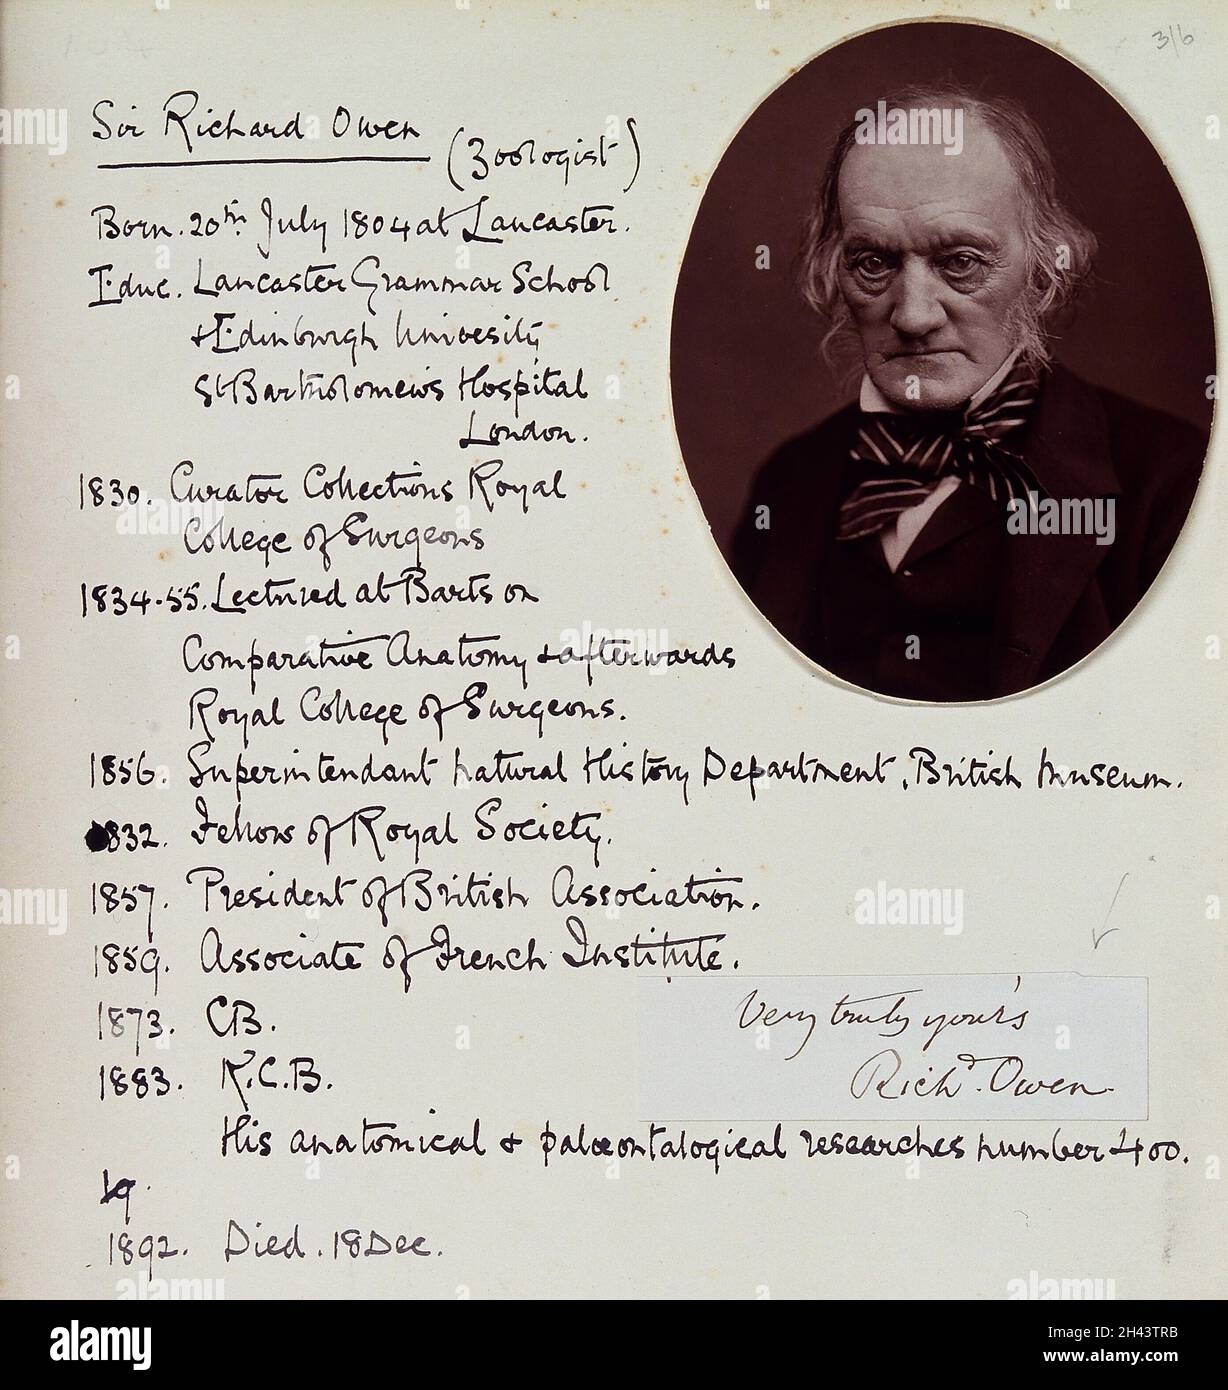 3/6
Sir Richard Owen (Zoologist)
Born. 20th July 1804 at Lancaster.
Educ. Lancaster Grammar School
& Edinburgh Univesity
St Bartholomew's Hospital
London.
1830. Curator Collections Royal
College of Surgeons
1834-55. Lectured at Barts on
Comparative Anatomy & afterwards
Royal College of Surgeons.
1856. Superintendant Natural History Department, British Museum.
1832. Fellow of Royal Society.
1857. President of British Association.
1859. Associate of French Institute.
1873. CB.
1883. K.C.B.
Very truly yours
Richd. Owen.
His anatomical & palæontalogical researches number 400.
19.
1892. Died. 18 Dec.
alamy
Image ID: 2H43TRB
www.alamy.com